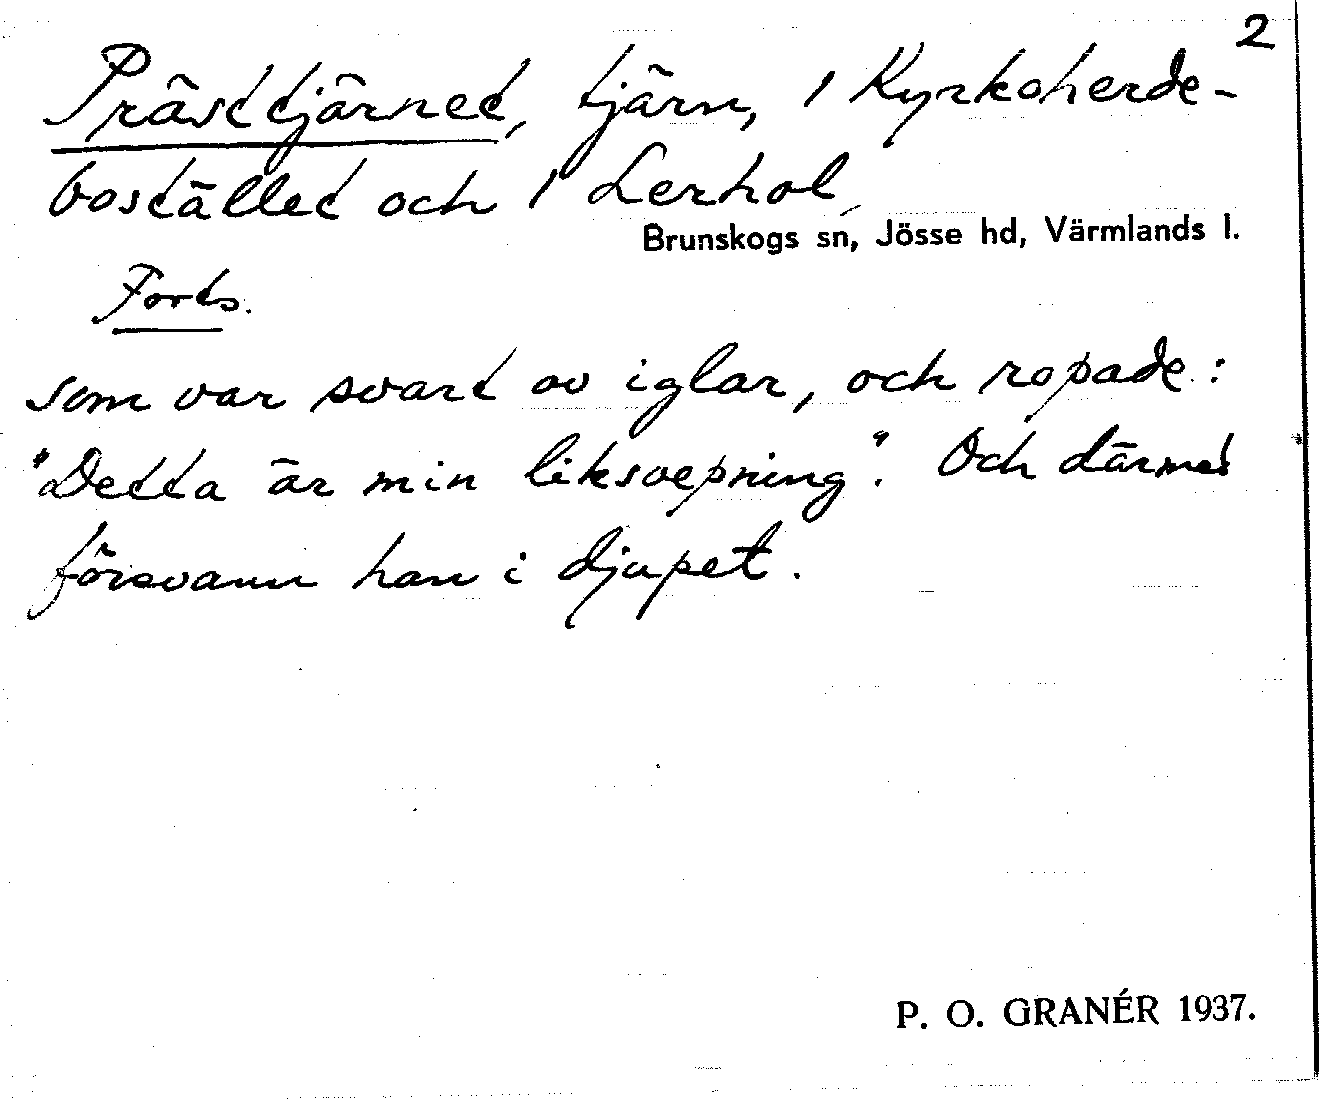 2
Prästtjärnet, tjärn, 1 Kyrkoherde-
bostället och 1 Lerhol,
Brunskogs sn, Jösse hd, Värmlands l.
Forts.
som var svart av iglar, och ropade:
"Detta är min liksvepning". Och därmed
försvann han i djupet.
P. O. GRANÉR 1937.